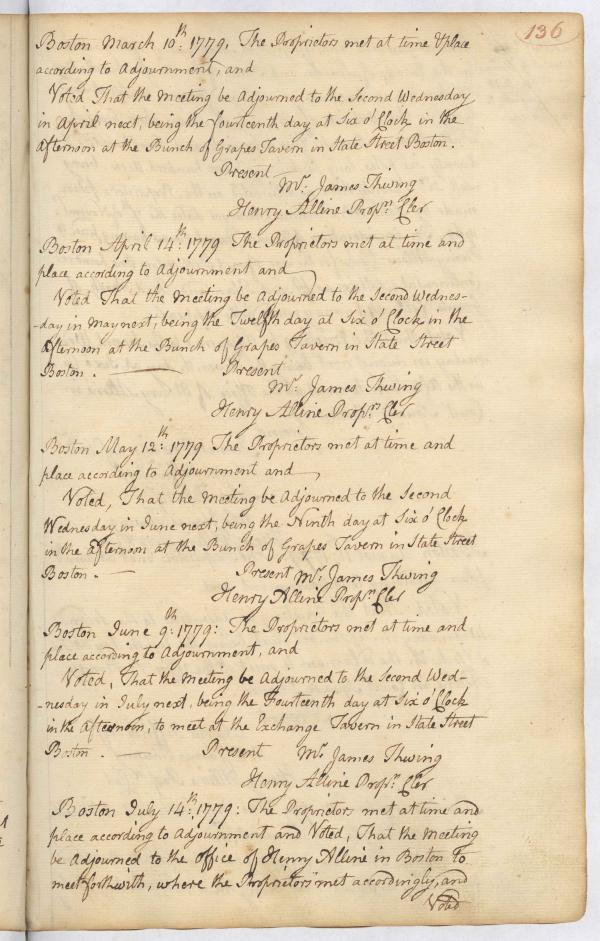 136
Boston March 10th: 1779, The Proprietors met at time & place
according to Adjournment, and
Voted That the Meeting be Adjourned to the Second Wednesday
in April next, being the fourteenth day at Six o'Clock in the
Afternoon at the Bunch of Grapes Tavern in State Street Boston.
Present
Mr. James Thwing
Henry Alline Proprs. Cler
Boston April 14th: 1779 The Proprietors met at time and
place according to Adjournment and
Voted That the Meeting be Adjourned to the Second Wednes-
-day in May next, being the Twelfth day at Six o'Clock in the
Afternoon at the Bunch of Grapes Tavern in State Street
Boston. — Present
Mr. James Thwing
Henry Alline Proprs. Cler
Boston May 12th: 1779 The Proprietors met at time and
place according to Adjournment and
Voted, That the Meeting be Adjourned to the Second
Wednesday in June next, being the Ninth day at Six o'Clock
in the Afternoon at the Bunch of Grapes Tavern in State Street
Boston. — Present Mr. James Thwing
Henry Alline Proprs. Cler
Boston June 9th: 1779: The Proprietors met at time and
place according to Adjournment, and
Voted, That the Meeting be Adjourned to the Second Wed-
-nesday in July next, being the Fourteenth day at Six o'Clock
in the Afternoon, to meet at the Exchange Tavern in State Street
Boston. — Present Mr. James Thwing
Henry Alline Proprs. Cler
Boston July 14th: 1779: The Proprietors met at time and
place according to Adjournment and Voted, That the Meeting
be Adjourned to the office of Henry Alline in Boston to
meet forthwith, where the Proprietors met accordingly, and
Voted